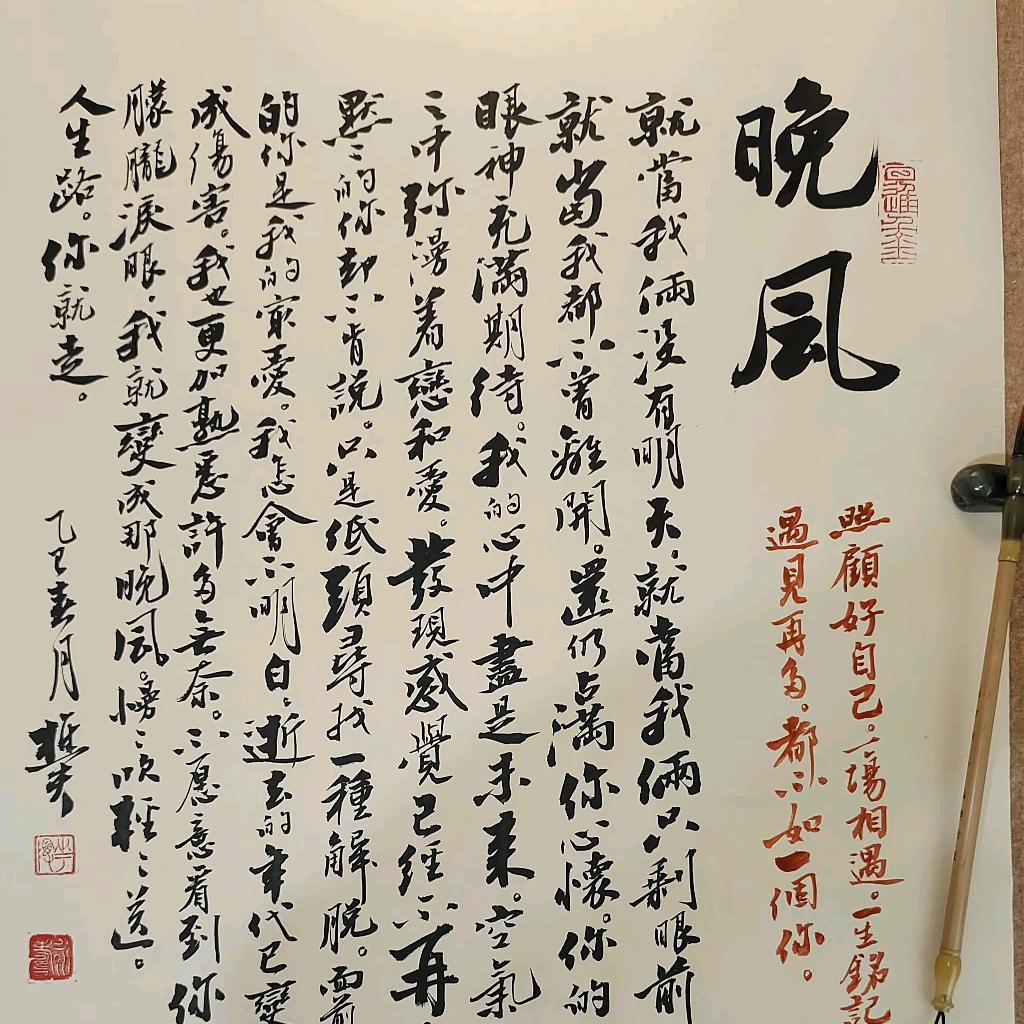 晚風
照顧好自己。一場相遇。一生銘記
遇見再多。都不如一個你。
就當我倆沒有明天。就當我倆只剩眼前
就當我都不曾離開。還仍占滿你心懷。你的
眼神充滿期待。我的心中盡是未來。空氣
之中弥漫着戀和愛。發現感覺已經不再
默々的你却不肯說。只是低頭尋找一種解脫。面前
的你是我的最愛。我怎會不明白。逝去的年代已變
成傷害。我也更加熟悉許多無奈。不愿意看到你
朦朧淚眼。我就變成那晚風。慢々吹輕々送。
人生路。你就走。
乙巳春月 樵夫